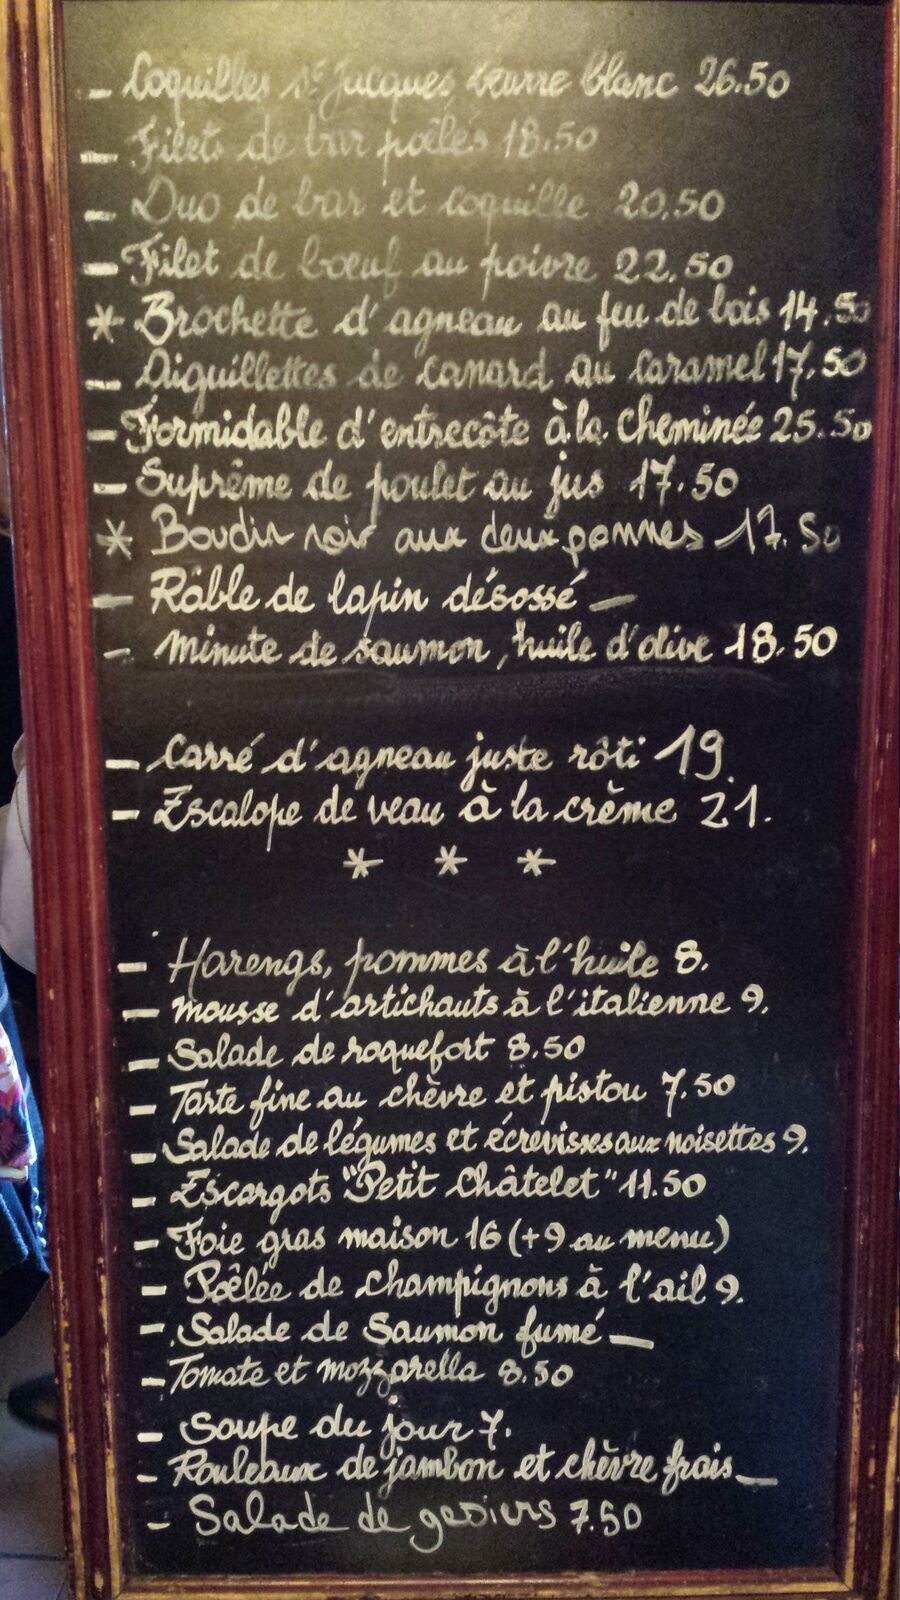 - Coquilles St Jacques beurre blanc 26.50
- Filets de bar poêlés 18.50
- Duo de bar et coquille 20.50
- Filet de bœuf au poivre 22.50
* Brochette d'agneau au feu de bois 14.50
- Aiguillettes de canard au caramel 17.50
- Formidable d'entrecôte à la cheminée 25.50
- Suprême de poulet au jus 17.50
* Boudin noir aux deux pommes 17.50
- Râble de lapin désossé —
- minute de saumon, huile d'olive 18.50
- Carré d'agneau juste rôti 19.
- Escalope de veau à la crème 21.
* * *
- Harengs, pommes à l'huile 8.
- mousse d'artichauts à l'italienne 9.
- Salade de roquefort 8.50
- Tarte fine au chèvre et pistou 7.50
- Salade de légumes et écrevisses aux noisettes 9.
- Escargots "Petit Châtelet" 11.50
- Foie gras maison 16 (+9 au menu)
- Poêlée de champignons à l'ail 9.
- Salade de Saumon fumé —
- Tomate et mozzarella 8.50
- Soupe du jour 7.
- Rouleaux de jambon et chèvre frais —
- Salade de gesiers 7.50